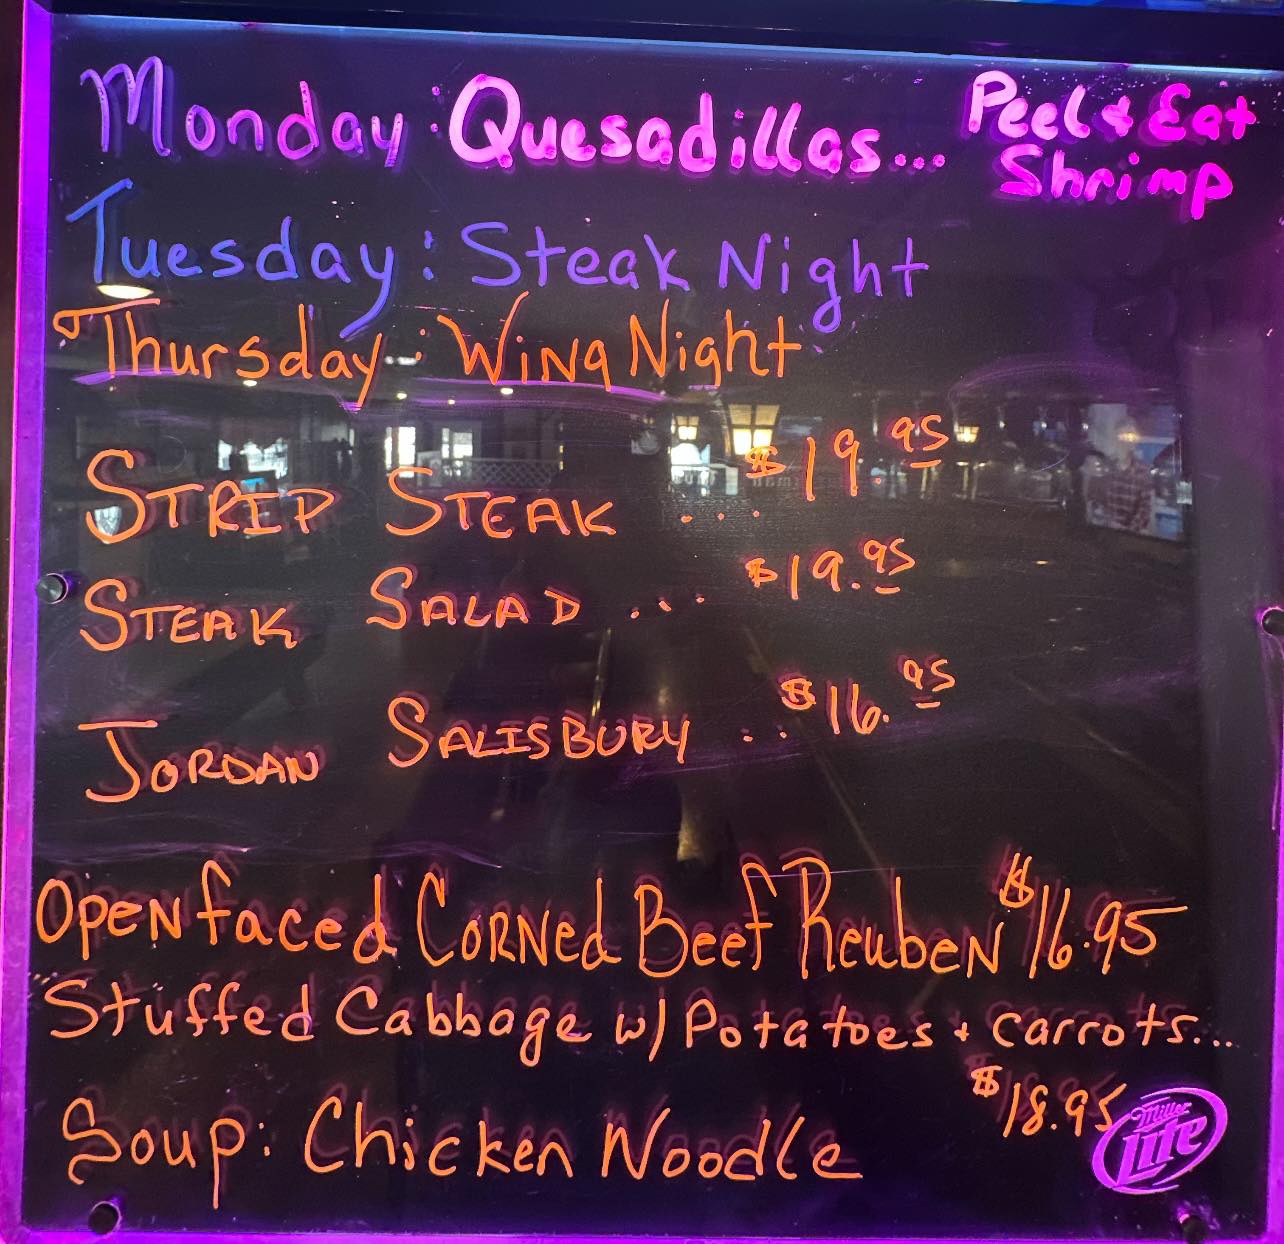 Monday: Quesadillas... Peel & Eat
Shrimp
Tuesday: Steak Night
Thursday: Wing Night
STRIP STEAK .... $19.95
STEAK SALAD ... $19.95
JORDAN SALISBURY ... $16.95
Open faced Corned Beef Reuben $16.95
Stuffed Cabbage w/ Potatoes + carrots...
$18.95
Soup: Chicken Noodle
Miller
Lite